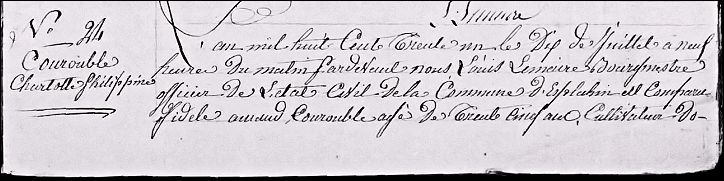 L. Limiere
No 24
Courouble
Charlotte Philippine
L'an mil huit Cent Trente un le Dix de Juillet a neuf
heures Du matin Pardevant nous Louis Lemiere Bourgmestre
officier De L'état Civil De la Commune D'Esplechin est Comparu
fidele amand Courouble agé De Trente Cinq ans, Cultivateur Do-